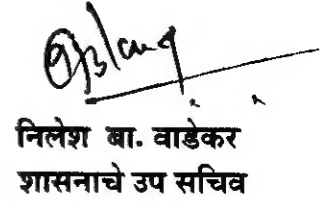 निलेश बा. वाडेकर
शासनाचे उप सचिव